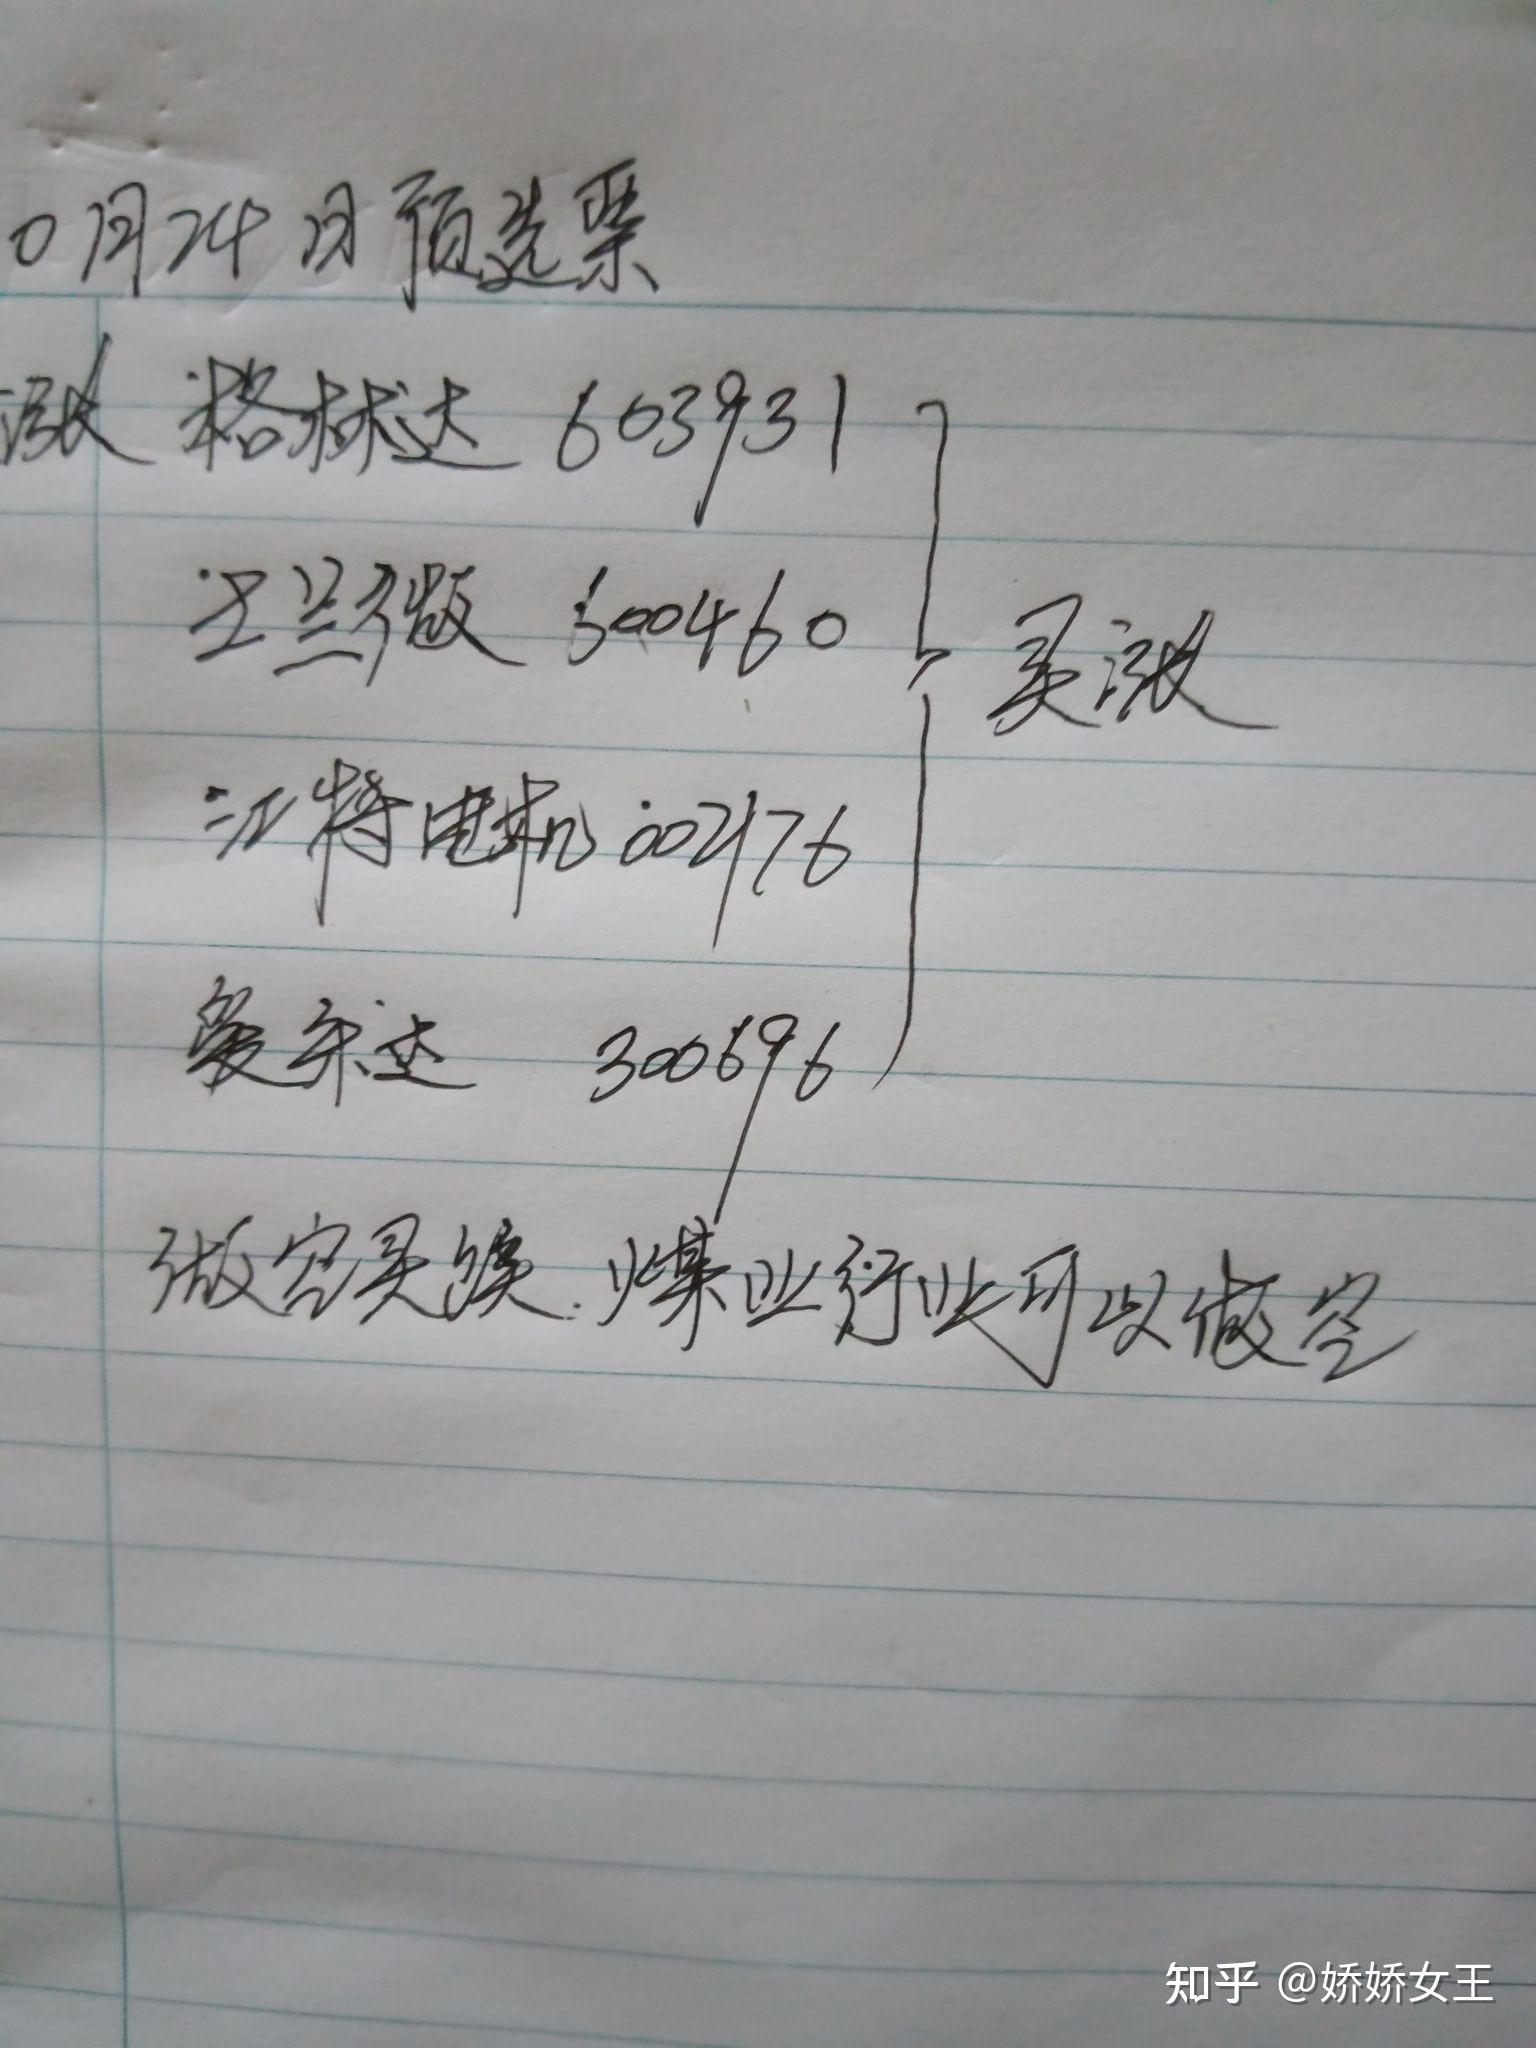 0月24日预选票
涨 格林达 603931
士兰微 600460
买涨
江特电机 002176
爱乐达 300696
做空买跌.煤业行业可以做空
知乎 @娇娇女王